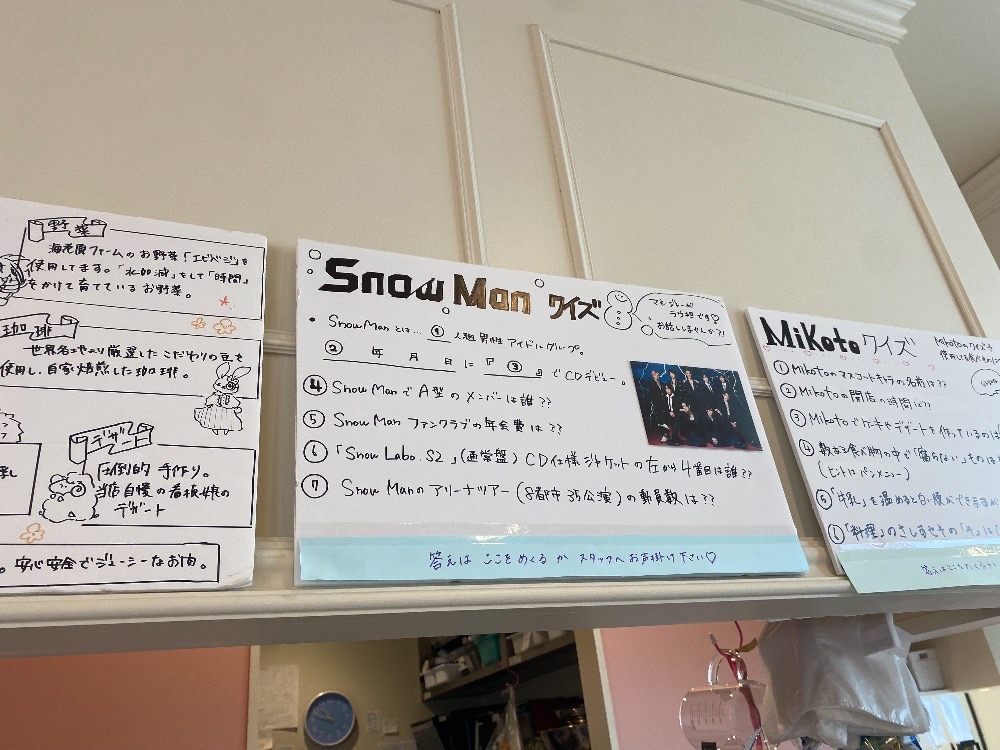 野菜
海老原ファームのお野菜「エビベジ」を
使用してます。「水加減」をして「時間」
をかけて育てているお野菜。
珈琲
世界各地より厳選したこだわりの豆を
使用し、自家焙煎した珈琲。
デザート
圧倒的 手作り。
当店自慢の看板娘の
デザート
。安心安全でジューシーなお肉。
Snow Man クイズ
ラウ担です♡
お話ししませんか?!
• SnowManとは… ① 人組男性アイドルグループ。
② 年 月 日に『 ③ 』でCDデビュー。
④ SnowManでA型のメンバーは誰??
⑤ SnowManファンクラブの年会費は??
⑥ 「Snow Labo. S2」(通常盤)CD仕様ジャケットの左から4番目は誰??
⑦ Snow Manのアリーナツアー(8都市35公演)の動員数は??
答えは ここをめくるか スタッフへお声掛け下さい♡
MiKoto クイズ
①Mikotoのマスコットキャラの名前は??
②Mikotoの開店の時間は??
③Mikotoでケーキやデザートを作っているのは
④数ある食べ物の中で「腐らない」ものは
(ヒントはパンメニュー)
⑤「牛乳」を温めると白い膜ができますが
⑥「料理」のさしすせその「そ」は